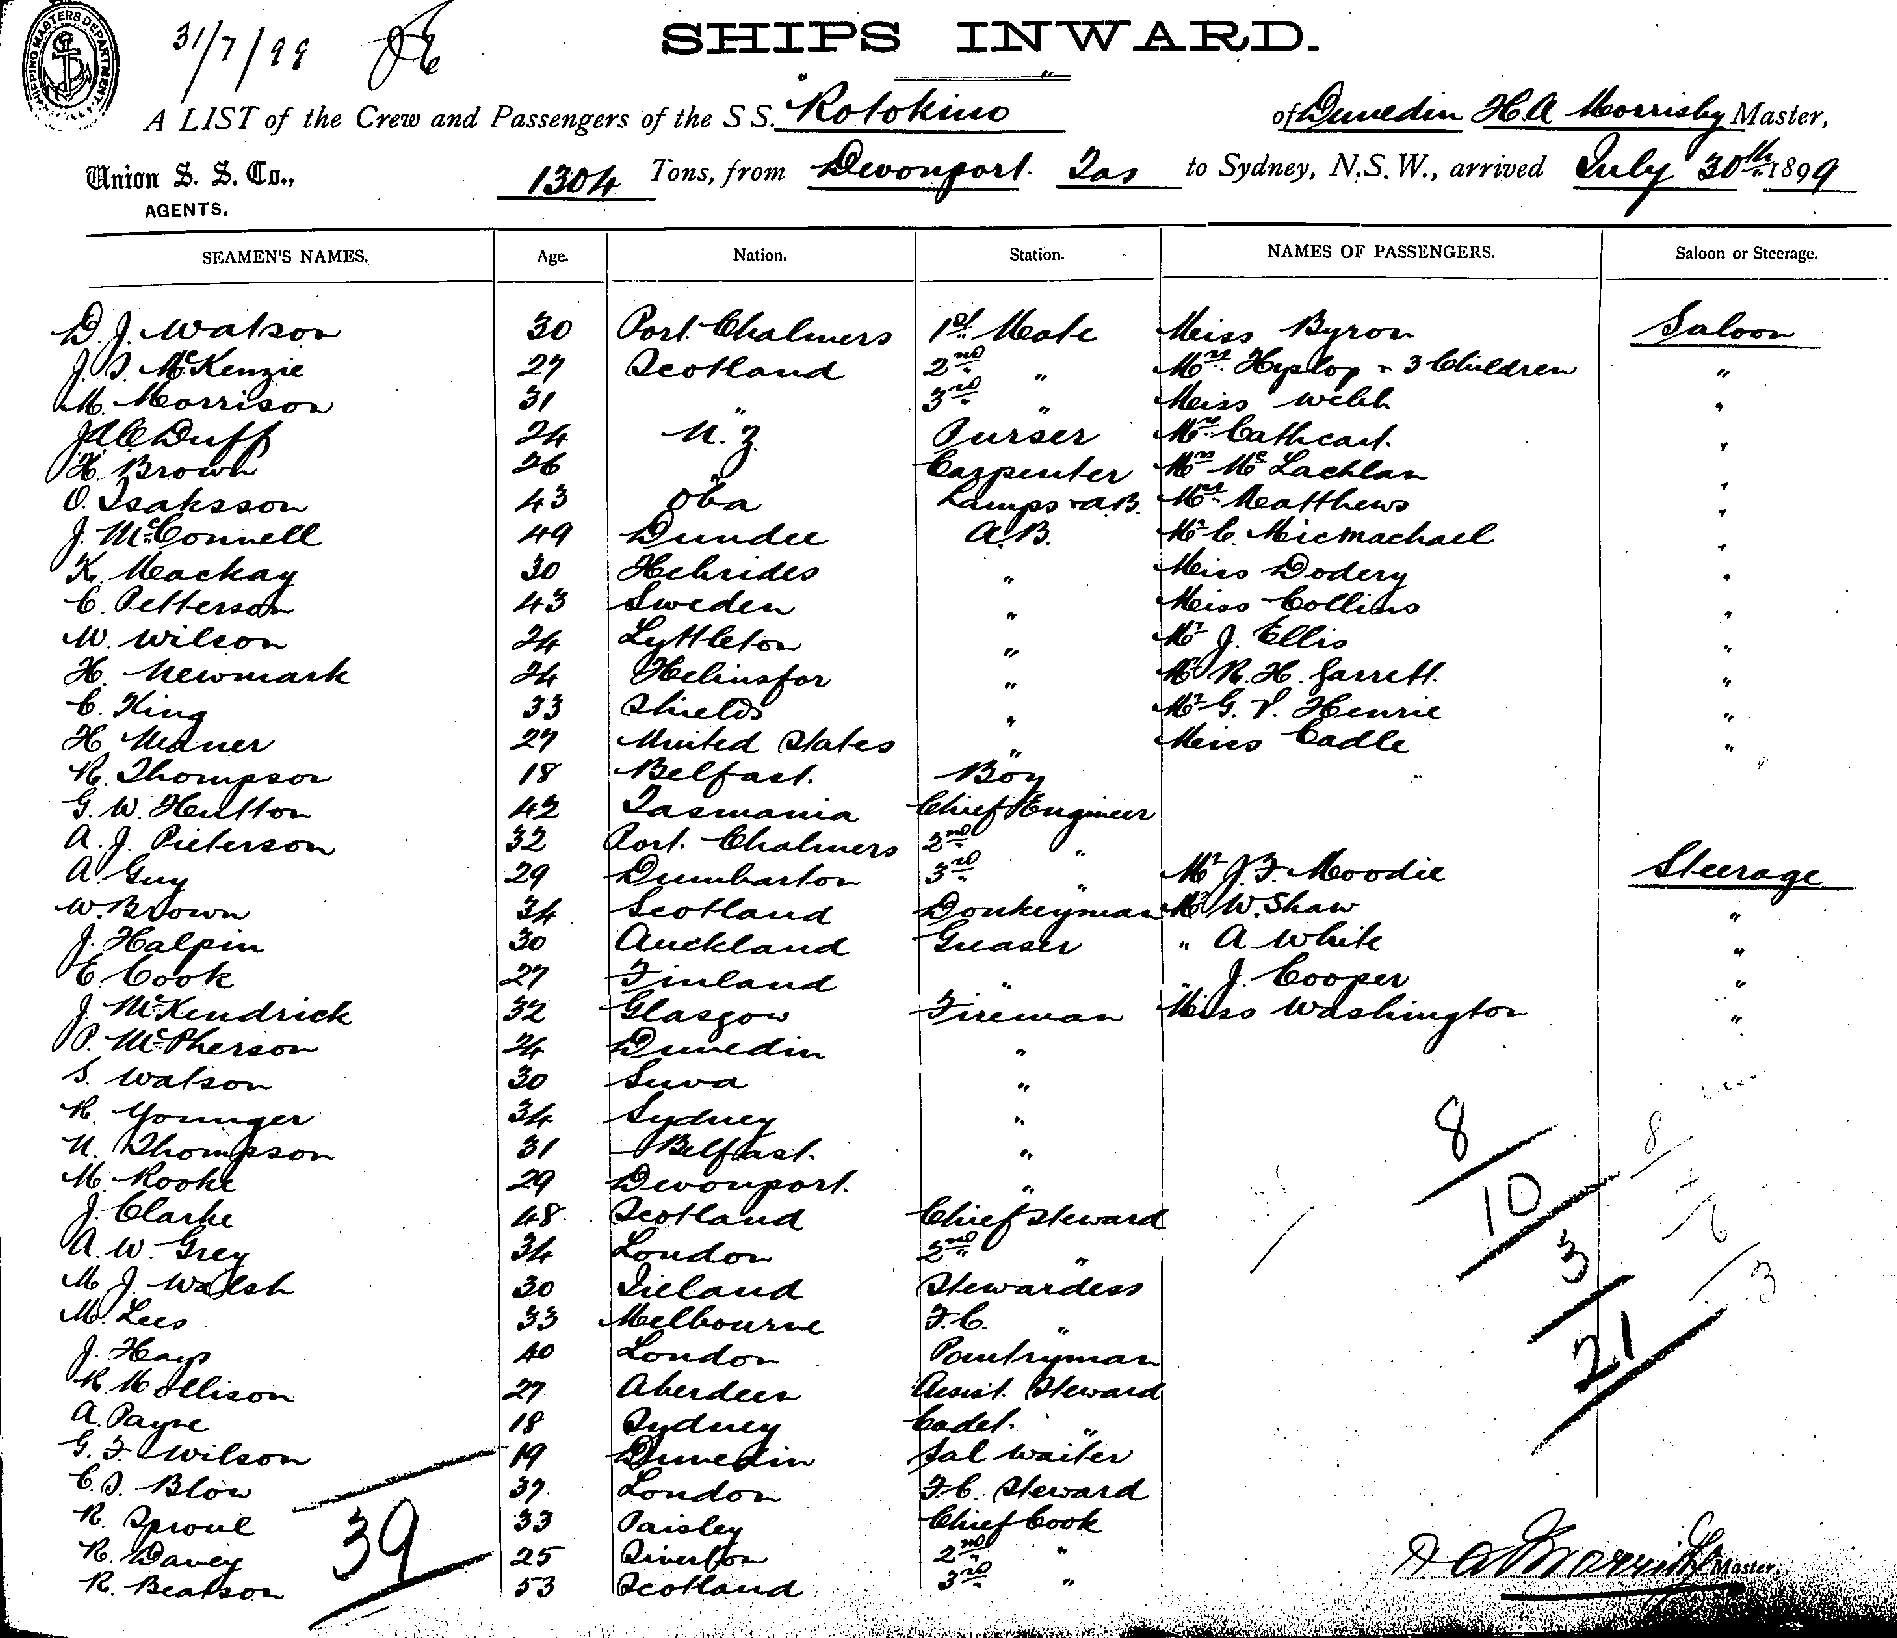 SHIPPING MASTERS DEPARTMENT
31/7/99
SHIPS INWARD.
A LIST of the Crew and Passengers of the S S. "Rotokino" of Dunedin H. A Morrisby Master,
Union S. S. Co., AGENTS. 1304 Tons, from Devonport. Tas to Sydney, N.S.W., arrived July 30th 1899
SEAMEN'S NAMES. Age. Nation. Station. NAMES OF PASSENGERS. Saloon or Steerage.
D. J. Watson 30 Port Chalmers 1st Mate Miss Byron Saloon
J. S. McKenzie 27 Scotland 2nd " Mrs. Hyslop & 3 Children "
M. Morrison 31 " 3rd " Miss Webb "
J A C Duff 24 N. Z. Purser Mrs. Cathcart. "
H. Brown 26 " Carpenter Mrs Mc Lachlan "
O. Isaksson 43 Oba Lamps & A.B. Mrs. Matthews "
J. McConnell 49 Dundee A.B. Mr C. Micmachael "
K. Mackay 30 Hebrides " Miss Dodery "
C. Petterson 43 Sweden " Miss Collins "
W. Wilson 24 Lyttleton " Mr J. Ellis "
H. Newmark 24 Helinsfor " Mr R. H. Garrett. "
C. King 33 Shields " Mr G. P. Henrie "
H. 27 United States " Miss Cadle "
R. Thompson 18 Belfast. Boy
G. W. Hutton 42 Tasmania Chief Engineer
A. J. Pieterson 32 Port. Chalmers 2nd "
A. Guy 29 Dumbarton 3rd " Mr J. F. Moodie Steerage
W. Brown 34 Scotland Donkeyman Mr W. Shaw "
J. Halpin 30 Auckland Greaser " A White "
C. Cook 27 Finland " " J. Cooper "
J. McKendrick 32 Glasgow Fireman Miss Washington "
P. McPherson 24 Dunedin "
S. Watson 30 Suva "
R. Younger 34 Sydney "
N. Thompson 31 Belfast. "
M. Rooke 29 Devonport. "
J. Clarke 48 Scotland Chief Steward
A. W. Grey 34 London 2nd "
M J. Walsh 30 Ireland Stewardess
M. Lees 33 Melbourne F. C. "
J. Hays 40 London Pantryman
R Mollison 27 Aberdeen Assist. Steward
A. Payne 18 Sydney Cadet. "
G. F. Wilson 19 Dunedin Sal Waiter
C. S. Blow 37. London F. C. Steward
R. Sproul 33 Paisley Chief Cook
R. Davey 25 Riverton 2nd "
R. Beatson 53 Scotland 3rd "
8
10
3
21
8
3
39
H A Morrisby Master.